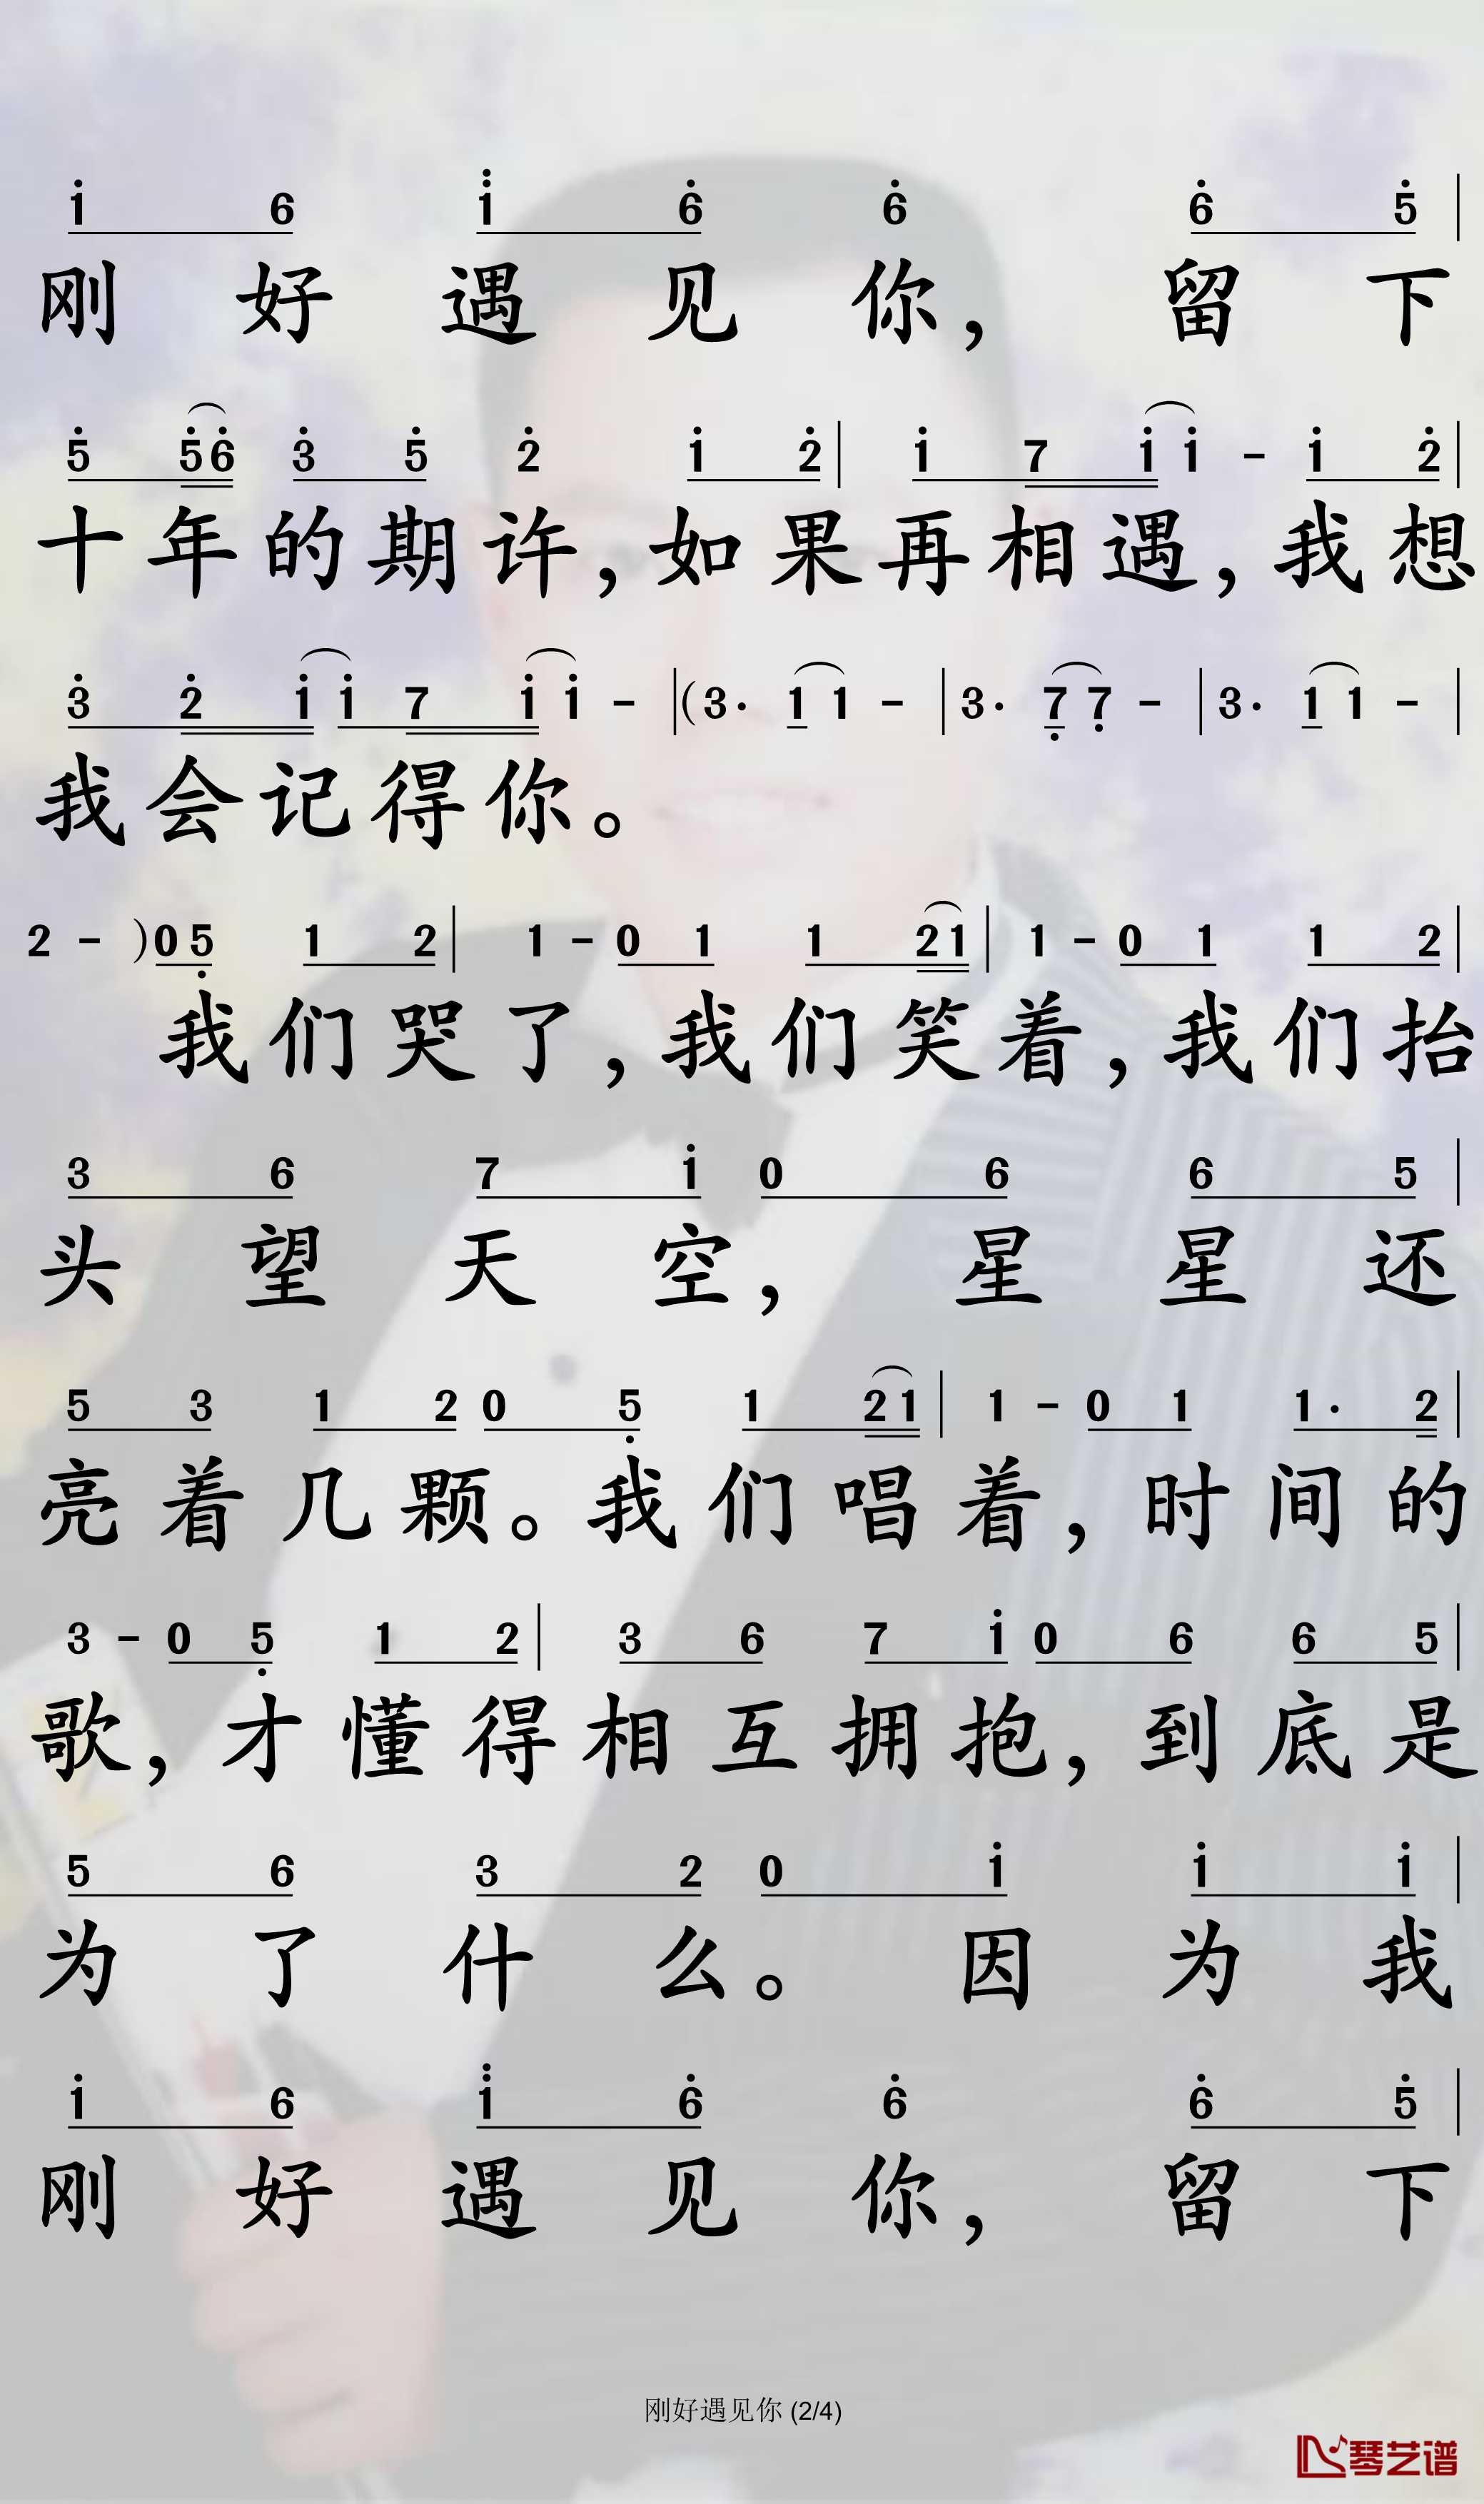 1 6 1 6 6 6 5
刚好遇见你，留下
5 56 3 5 2 1 2 | 1 7 1 1 - 1 2 |
十年的期许，如果再相遇，我想
3 2 1 1 7 1 1 - | (3· 1 1 - | 3· 7 7 - | 3· 1 1 - |
我会记得你。
2 - ) 0 5 1 2 | 1 - 0 1 1 21 | 1 - 0 1 1 2 |
我们哭了，我们笑着，我们抬
3 6 7 1 0 6 6 5 |
头望天空，星星还
5 3 1 2 0 5 1 21 | 1 - 0 1 1· 2 |
亮着几颗。我们唱着，时间的
3 - 0 5 1 2 | 3 6 7 1 0 6 6 5 |
歌，才懂得相互拥抱，到底是
5 6 3 2 0 1 1 1 |
为了什么。因为我
1 6 1 6 6 6 5 |
刚好遇见你，留下
刚好遇见你 (2/4)
琴艺谱